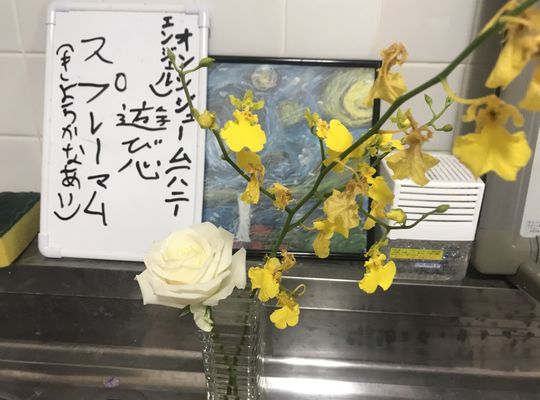 オンシジューム(ハニー
エンジェル)
遊び心
スプレーマム
(きよらかなあい)